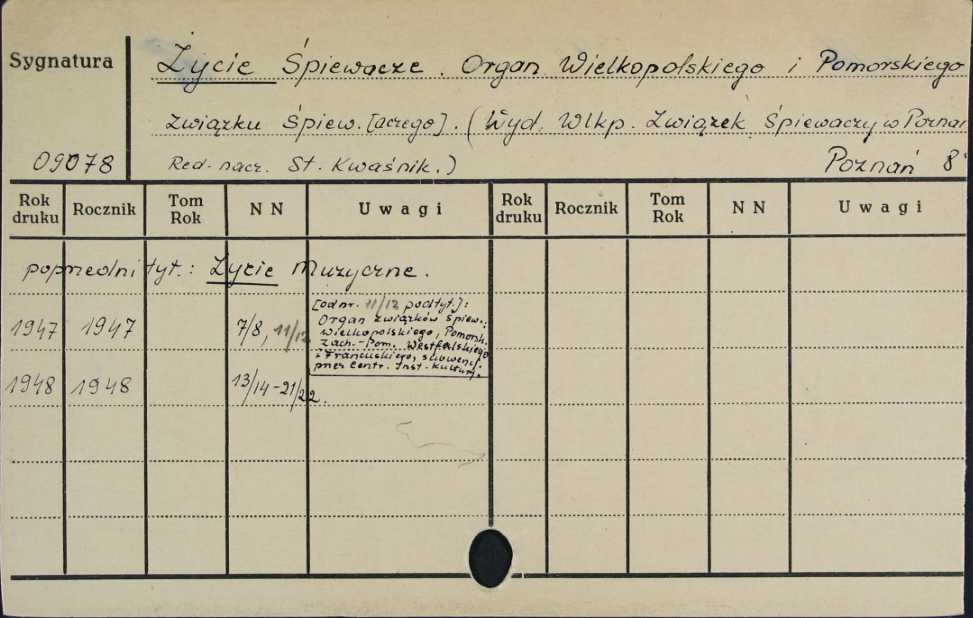 Sygnatura
Życie Śpiewacze. Organ Wielkopolskiego i Pomorskiego
Związku Śpiew.[aczego]. (Wyd. Wlkp. Związek Śpiewaczy w Poznan
09078
Red. nacz. St. Kwaśnik.)
Poznań 8°
Rok druku Rocznik Tom Rok NN Uwagi Rok druku Rocznik Tom Rok NN Uwagi
poprzedni tyt.: Życie Muzyczne.
1947 1947 7/8, 11/12
[od nr. 11/12 podtyt.]:
Organ związków śpiew.:
Wielkopolskiego, Pomorsk.
Zach.-Pom. Westfalskiego
i Francuskiego, subwencj.
przez Centr. Inst. Kultury.
1948 1948 13/14-21/22.